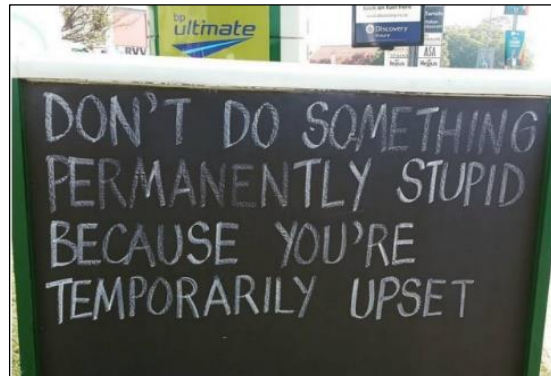 bp
ultimate
Discovery
RVV
ASA
DON'T DO SOMETHING
PERMANENTLY STUPID
BECAUSE YOU'RE
TEMPORARILY UPSET